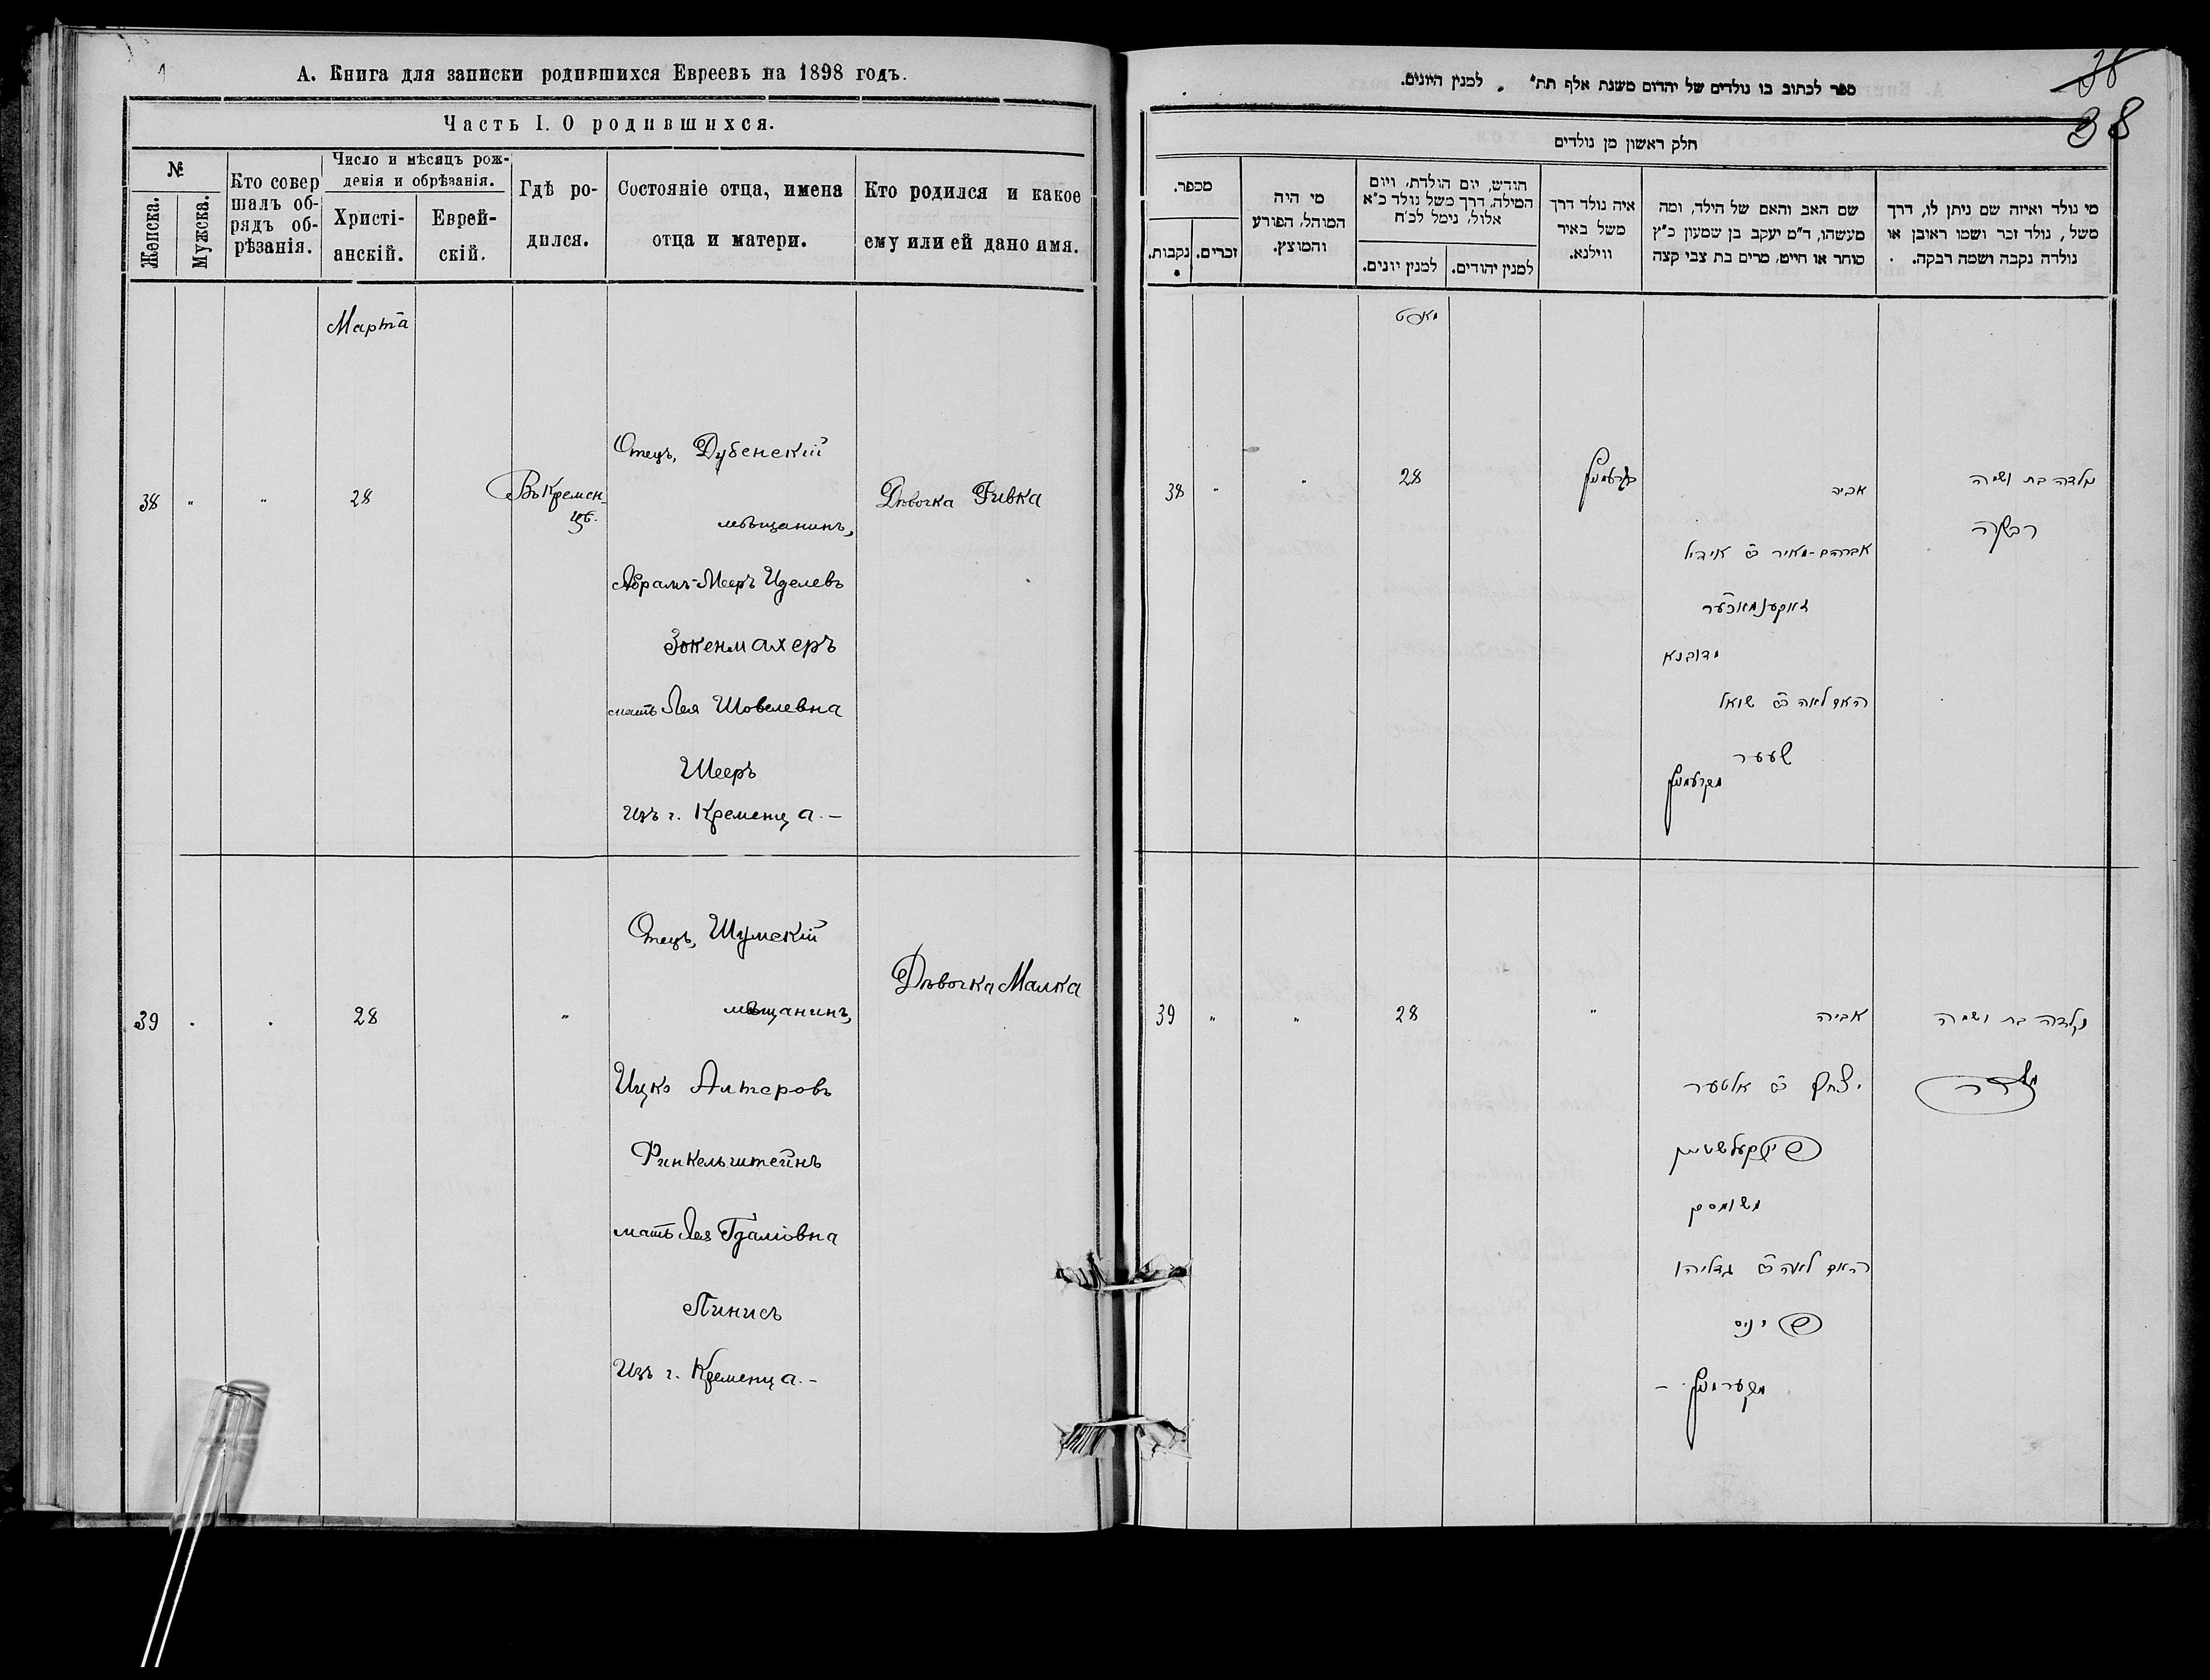 1
А. Книга для записки родившихся Евреевъ на 1898 годъ.
Часть I. О родившихся.
№
Женска.
Мужска.
Кто совер
шалъ об-
рядъ об-
рѣзанія.
Число и мѣсяцъ рож-
денія и обрѣзанія.
Христі-
анскій.
Еврей-
скій.
Гдѣ ро-
дился.
Состояніе отца, имена
отца и матери.
Кто родился и какое
ему или ей дано имя.
Марта
38 " " 28
Въ Кремен-
цѣ.
Отецъ, Дубенскій
мѣщанинъ,
Абрамъ-Мееръ Иделевъ
Зокенмахеръ
мать Лея Шовелевна
Шееръ
Изъ г. Кременца.-
Дѣвочка Ривка
39 . . 28 "
Отецъ, Шумскій
мѣщанинъ,
Ицко Алтеровъ
Финкельштейнъ
мать Лея Гдаліовна
Пинисъ
Изъ г. Кременца.-
Дѣвочка Малка
38
38
ספר לכתוב בו נולדים של יהדום משנת אלף תת״ למנין היונים.
חלק ראשון מן נולדים
מספר.
נקבות.
זכרים.
מי היה
המוהל, הפורע
והמוצץ.
חודש, יום הולדת, ויום
המילה, דרך משל נולד כ״א
אלול, נימל לכ״ח
למנין יונים.
למנין יהודים.
איה נולד דרך
משל באיר
ווילנא.
שם האב והאם של הילד, ומה
מעשהו, ד״מ יעקב בן שמעון כ״ץ
סוחר או חייט, מרים בת צבי קצה
מי נולד ואיזה שם ניתן לו, דרך
משל, נולד זכר ושמו ראובן או
נולדה נקבה ושמה רבקה.
מארט
38 " " 28
קרעמניץ
אביה
אברהם-מאיר ב״ר אידיל
זאקענמאכער
מדובנא
האם לאה ב״ר שואל
שעער
מקרעמניץ
נולדה בת ושמה
רבקה
39 " " 28 "
אביה
יצחק ב״ר אלטער
פינקעלשטיין
משומסק
האם לאה ב״ר גדליהו
פיניס
מקרעמניץ -
נולדה בת ושמה
מלכה